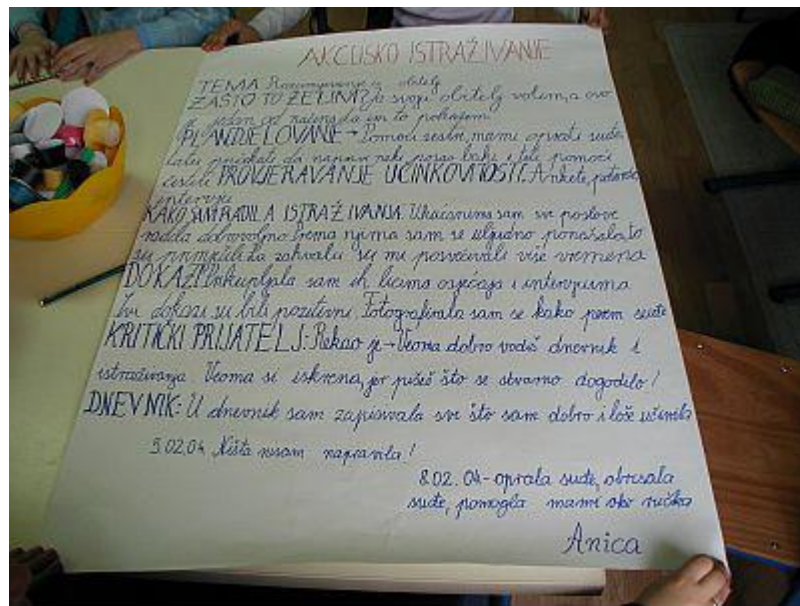 AKCIJSKO ISTRAŽIVANJE
TEMA Razumijevanje u obitelj
ZAŠTO TO ŽELIM? Ja svoju obitelj volim, a ovo
je jedan od načina da im to pokažem.
PLAN DJELOVANJE → Pomoći sestri, mami oprati suđe,
baki i teti pomoći
čistiti PROVJERAVANJE UČINKOVITOSTI: Ankete,
intervju
KAKO SAM RADILA ISTRAŽIVANJA. Ukućanima sam sve poslove
radila dobrovoljno. Prema njima sam se uljudno ponašala, to
su primjetili za zahvalu su mi posvećivali više vremena
DOKAZI: Prikupljala sam ih licima osjećaja i intervjuima
Svi dokazi su bili pozitivni. Fotografirala sam se kako perem suđe
KRITIČKI PRIJATELJ: Rekao je → Veoma dobro vodiš dnevnik i
istraživanja Veoma si iskrena, jer pišeš što se stvarno dogodilo!
DNEVNIK: U dnevnik sam zapisivala sve što sam dobro i loše učinila
5.02.04. Ništa nisam napravila!
8.02.04 - oprala suđe, obrisala
suđe, pomogla mami oko ručka
Anica